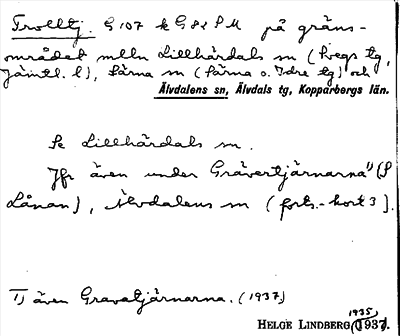 Trolltj. G 107 k G 8 d S M på gräns-
området mlln Lillhärdals sn (Svegs tg,
Jämtl. l), Särna sn (Särna o. Idre tg) och
Älvdalens sn, Älvdals tg, Kopparbergs län.
Se Lillhärdals sn.
Jfr även under Grävertjärnarna 1) (S
Lånan), Älvdalens sn (forts.-kort 3).
1) även Gravatjärnarna. (1937)
1935,
HELGE LINDBERG (1937).